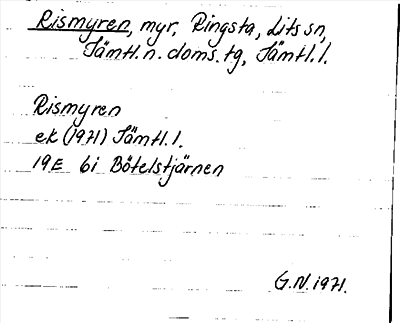 Rismyren, myr, Ringsta, Lits sn,
Jämtl. n. doms. tg, Jämtl. l.
Rismyren
ek (1971) Jämtl. l.
19E 6i Bötelstjärnen
G.N. 1971.